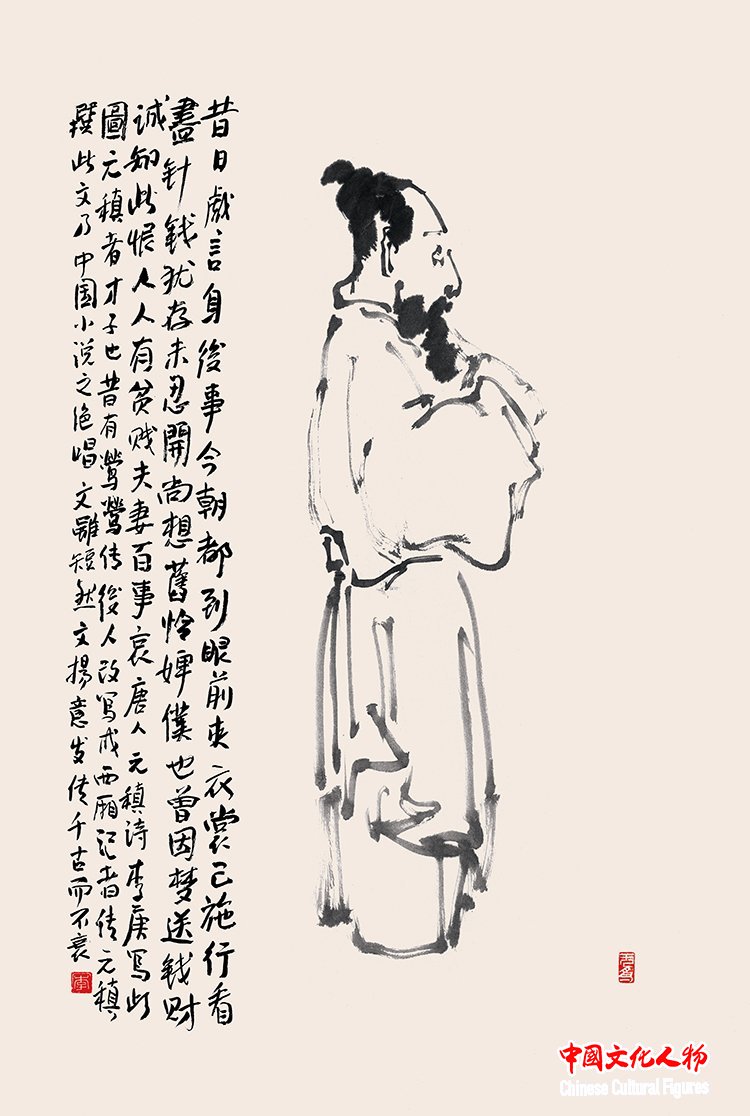 昔日戲言身後事今朝都到眼前來衣裳已施行看
盡针钱犹存未忍開尚想舊怜婢僕也曾因梦送钱财
诚知此恨人人有贫贱夫妻百事哀唐人元稹诗李庚写此
圖元稹者才子也昔有鶯鶯传後人改写成西厢记者传元稹
撰此文乃中国小说之绝唱文雖短然文揚意发传千古而不衰
李
中國文化人物
Chinese Cultural Figures